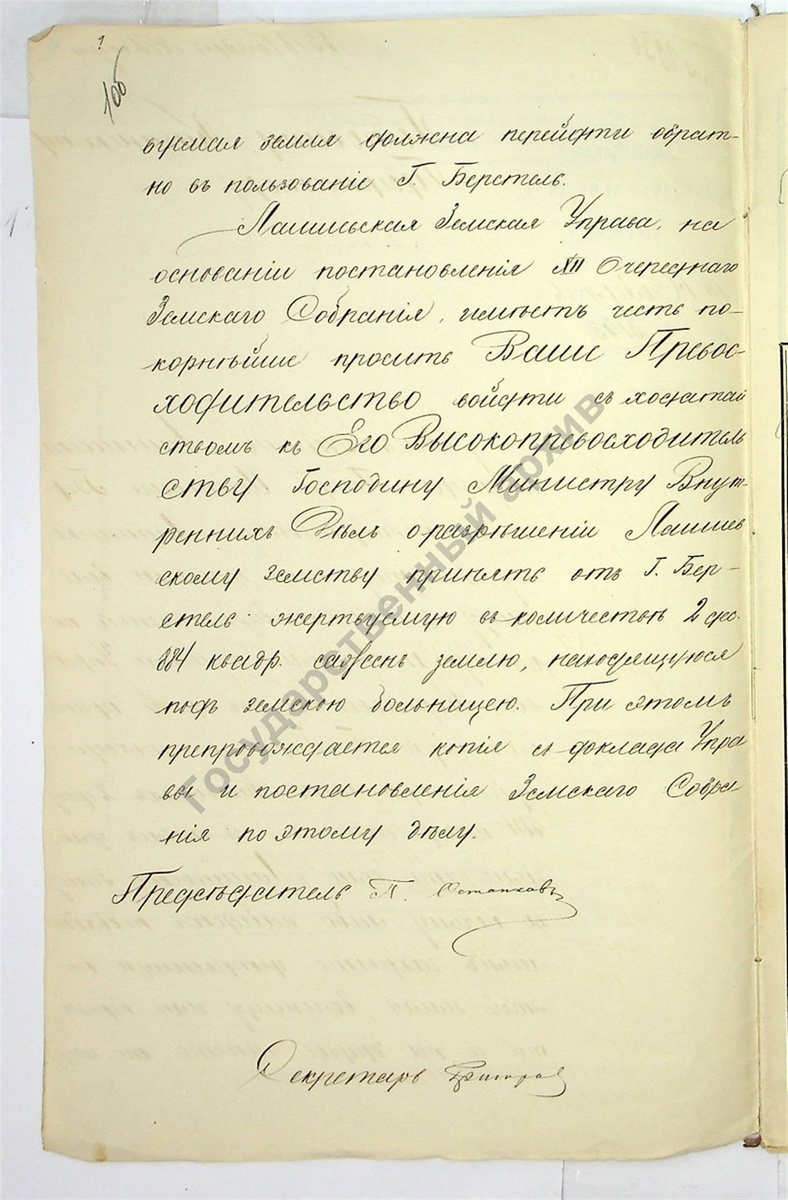 1об
вуемая земля должна перейдти обрат-
но въ пользованіе Г. Берстель.
Лаишевская Земская Управа, на
основаніи постановленія XII Очереднаго
Земскаго Собранія, имѣетъ честь по-
корнѣйше просить Ваше Превос-
ходительство войдти съ ходатай
ствомъ къ Его Высокопревосходитель
ству Господину Министру Внут-
реннихъ Дѣлъ о разрѣшеніи Лаишев
скому земству принять отъ Г. Бер-
стель жертвуемую въ количествѣ 2 дес.
884 квадр. сажень землю, находящуюся
подъ земскою больницею. При этомъ
препровождается копія съ доклада Упра
вы и постановленія Земскаго Собра
нія по этому дѣлу.
Предсѣдатель П. Остапковъ
Секретарь
Государственный архив